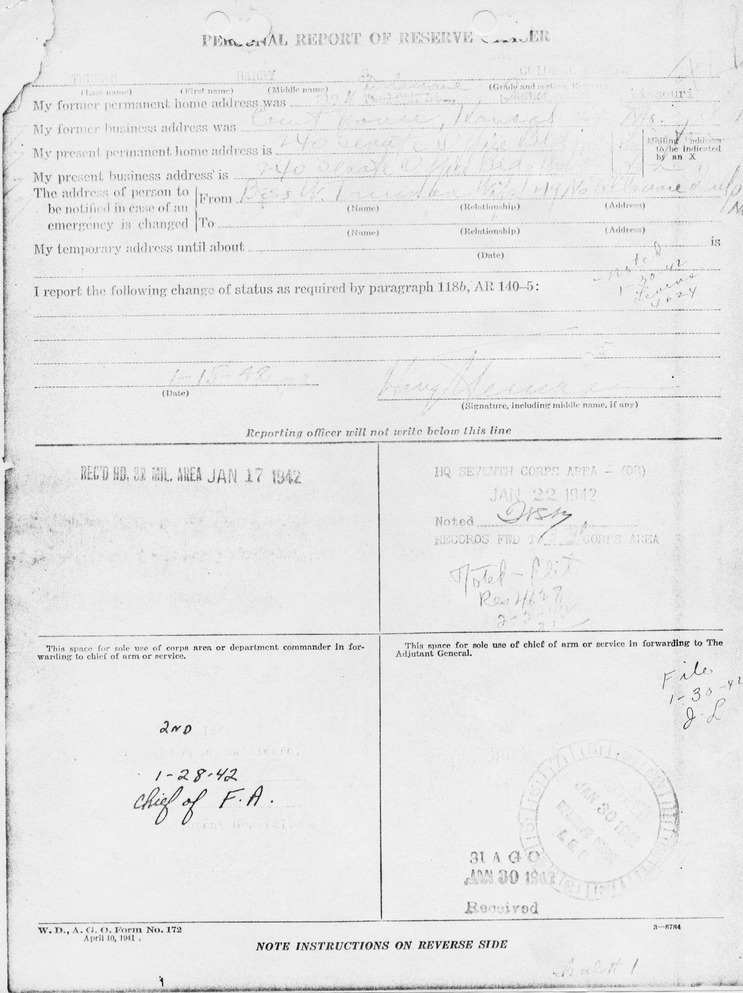 PERSONAL REPORT OF RESERVE OFFICER
TRUMAN HARRY S COLONEL
(Last name) (First name) (Middle name) (Grade and section, Reserve)
My former permanent home address was Missouri
My former business address was Court House, Kansas Mo.
My present permanent home address is 240 Senate Office Bld
Mailing address to be indicated by an X
My present business address is 240 Senate Office Bld
The address of person to be notified in case of an emergency is changed
From Bess W. Truman, Wife, 219 No Delaware
(Name) (Relationship) (Address)
To
(Name) (Relationship) (Address)
My temporary address until about is
(Date)
Noted
1-30-42
I report the following change of status as required by paragraph 118b, AR 140–5:
1-15-42 Harry S Truman
(Date)
(Signature, including middle name, if any)
Reporting officer will not write below this line
REC'D HD. MIL. AREA JAN 17 1942
HQ SEVENTH CORPS AREA – (OR)
JAN 22 1942
Noted
RECORDS FWD TO CORPS AREA
Noted
Res 4628
This space for sole use of corps area or department commander in for-
warding to chief of arm or service.
This space for sole use of chief of arm or service in forwarding to The
Adjutant General.
File
1-30-42
J. L
2ND
1-28-42
Chief of F.A.
JAN 30 1942
31 A G O
JAN 30 1942
Received
W. D., A. G. O. Form No. 172
April 10, 1941
3—8784
NOTE INSTRUCTIONS ON REVERSE SIDE